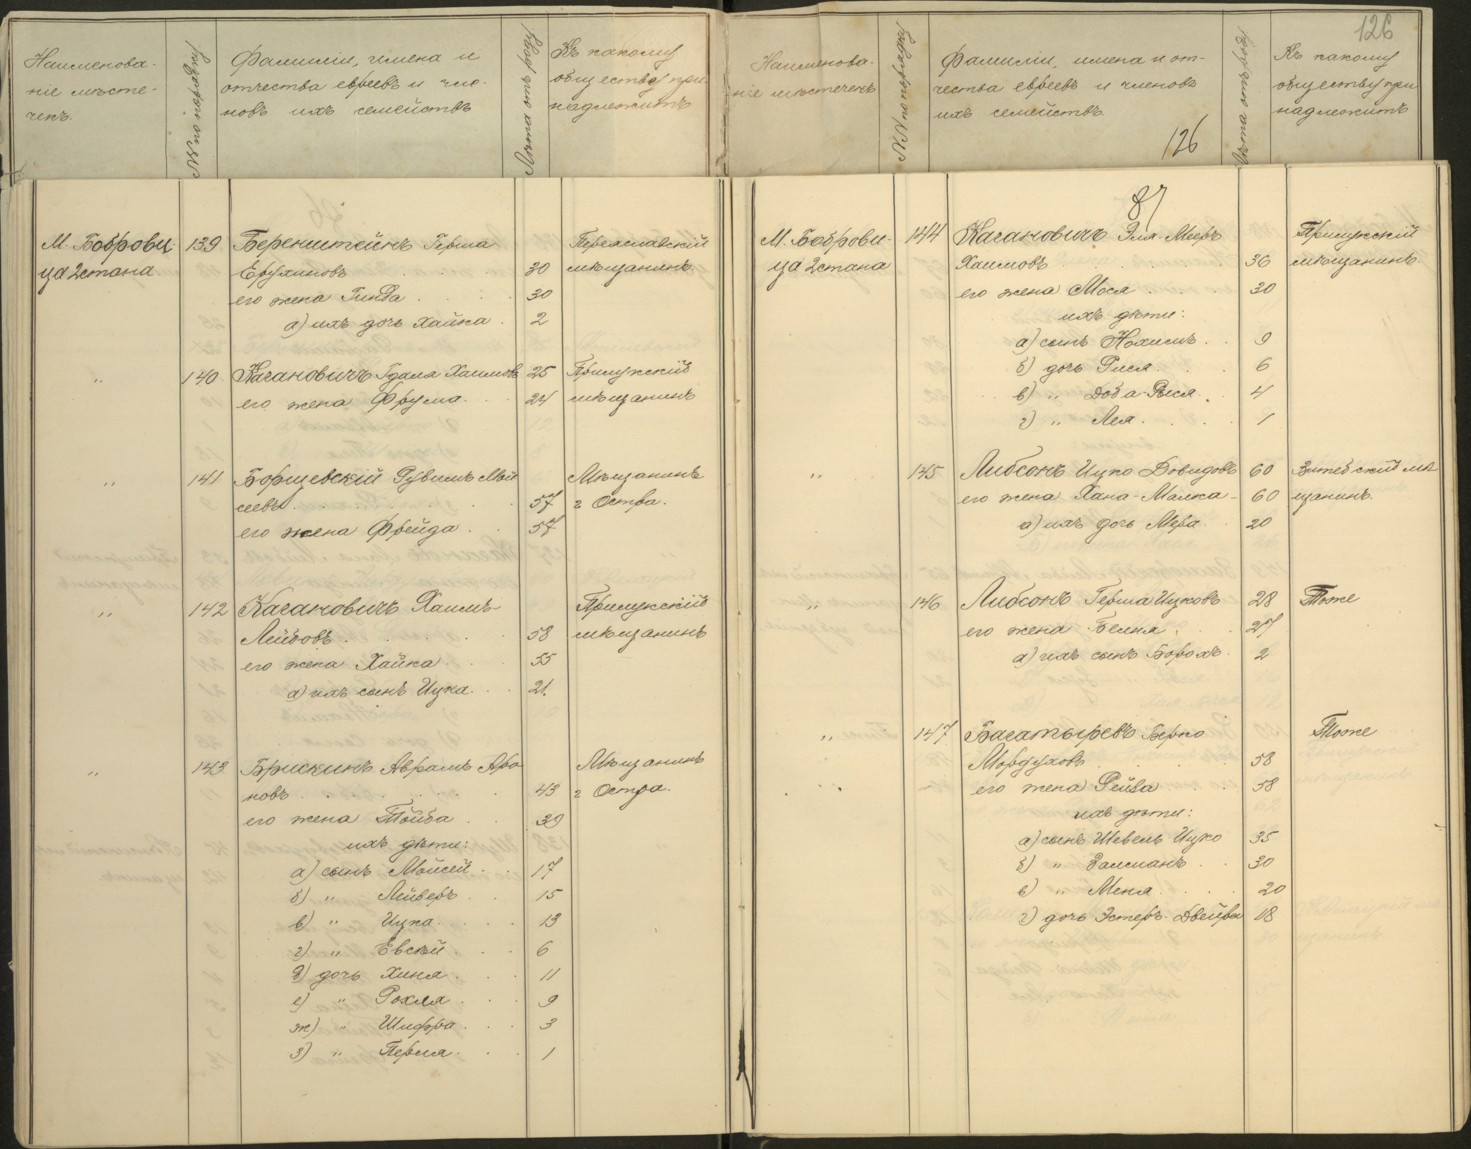 Наименова-
ніе мѣсте-
чекъ.
№№ по порядку
Фамиліи, имена и
отчества евреевъ и чле-
новъ ихъ семействъ
Лѣта отъ роду
Къ какому
обществу при-
надлежитъ
М. Боброви-
ца 2 стана
139 Беренштейнъ Герша Переяславскій
Евухимовъ 30 мѣщанинъ
его жена Гинда 30
а) ихъ дочь Хайка 2
" 140 Кагановичъ Гдаля Хаимовъ 25 Прилукскій
его жена Фрума 24 мѣщанинъ
" 141 Борщевскій Рувимъ Мой Мѣщанинъ
сеевъ 57 г Остра.
его жена Фрейда 57
" 142 Кагановичъ Хаимъ- Прилукскій
Лейбовъ 58 мѣщанинъ
его жена Хайка 55
а) ихъ сынъ Ицка 21.
" 143 Брискинъ Аврамъ Аро Мѣщанинъ
новъ 43 г Остра.
его жена Тойба 39
ихъ дѣти:
а) сынъ Мойсей 17
б) " Лейверъ 15
в) " Ицка 13
г) " Евсей 6
д) дочь Хиня 11
е) " Рохля 9
ж) " Шифра 3
з) " Перля 1
126
Наименова-
ніе мѣстечекъ
№№ по порядку
Фамиліи, имена и от-
чества евреевъ и членовъ
ихъ семействъ
126
Лѣта отъ роду
Къ какому
обществу при
надлежитъ
87
М. Боброви-
ца 2 стана
144 Кагановичъ Эля-Мееръ Прилукскій
Хаимовъ 36 мѣщанинъ
его жена Мося 30
ихъ дѣти:
а) сынъ Нохимъ 9
б) дочь Рися 6
в) " Доба-Рися 4
г) " Лея 1
" 145 Либсонъ Ицко Довидовъ 60 Витебскій мѣ
его жена Хана-Малка- 60 щанинъ.
а) ихъ дочь Мера 20
" 146 Либсонъ Герша Ицковъ 28 Тоже
его жена Бейля 27
а) ихъ сынъ Борохъ 2
" 147 Багатыревъ Берко Тоже
Мордуховъ 58
его жена Рейза 58
ихъ дѣти:
а) сынъ Шевель Ицко 35
б) " Залманъ 30
в) " Меня 20
г) дочь Эстеръ Двейра 18